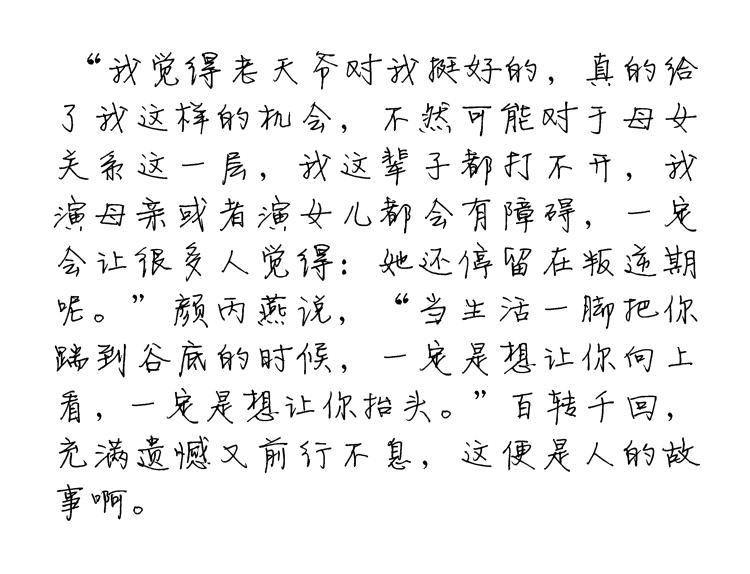 “我觉得老天爷对我挺好的，真的给
了我这样的机会，不然可能对于母女
关系这一层，我这辈子都打不开，我
演母亲或者演女儿都会有障碍，一定
会让很多人觉得：她还停留在叛逆期
呢。”颜丙燕说，“当生活一脚把你
踹到谷底的时候，一定是想让你向上
看，一定是想让你抬头。”百转千回，
充满遗憾又前行不息，这便是人的故
事啊。